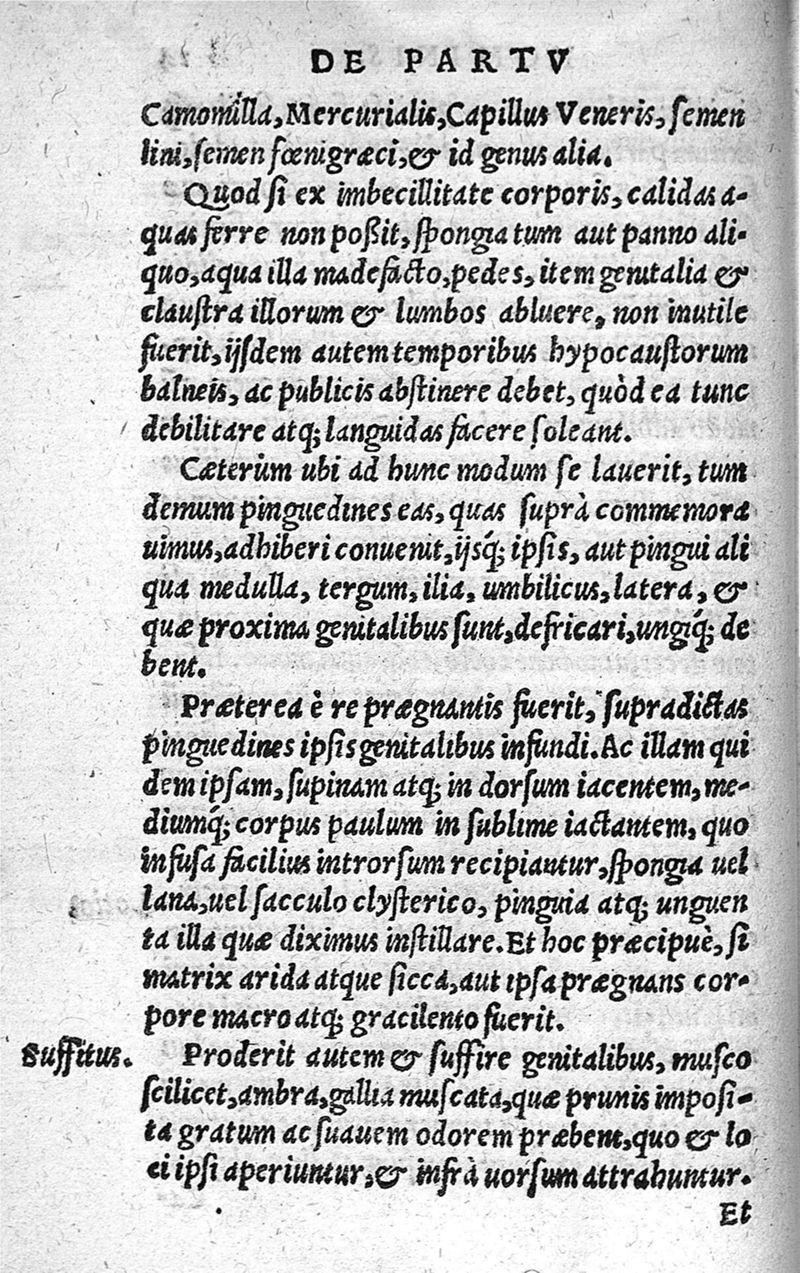 DE PARTV
Camomilla, Mercurialis, Capillus Veneris, semen
lini, semen fœnigræci, & id genus alia.
Quod si ex imbecillitate corporis, calidas a-
quas ferre non poßit, spongia tum aut panno ali-
quo, aqua illa madefacto, pedes, item genitalia &
claustra illorum & lumbos abluere, non inutile
fuerit, ijsdem autem temporibus hypocaustorum
balneis, ac publicis abstinere debet, quòd ea tunc
debilitare atq; languidas facere soleant.
Cæterùm ubi ad hunc modum se lauerit, tum
demum pinguedines eas, quas suprà commemora
uimus, adhiberi conuenit, ijsq́; ipsis, aut pingui ali
qua medulla, tergum, ilia, umbilicus, latera, &
quæ proxima genitalibus sunt, defricari, ungiq́; de
bent.
Præterea è re prægnantis fuerit, supradictas
pinguedines ipsis genitalibus infundi. Ac illam qui
dem ipsam, supinam atq; in dorsum iacentem, me-
diumq́; corpus paulum in sublime iactantem, quo
infusa facilius introrsum recipiantur, spongia uel
lana, uel sacculo clysterico, pinguia atq; unguen
ta illa quæ diximus instillare. Et hoc præcipuè, si
matrix arida atque sicca, aut ipsa prægnans cor-
pore macro atq; gracilento fuerit.
Suffitus. Proderit autem & suffire genitalibus, musco
scilicet, ambra, gallia muscata, quæ prunis imposi-
ta gratum ac suauem odorem præbent, quo & lo
ci ipsi aperiuntur, & infrà uorsum attrahuntur.
Et